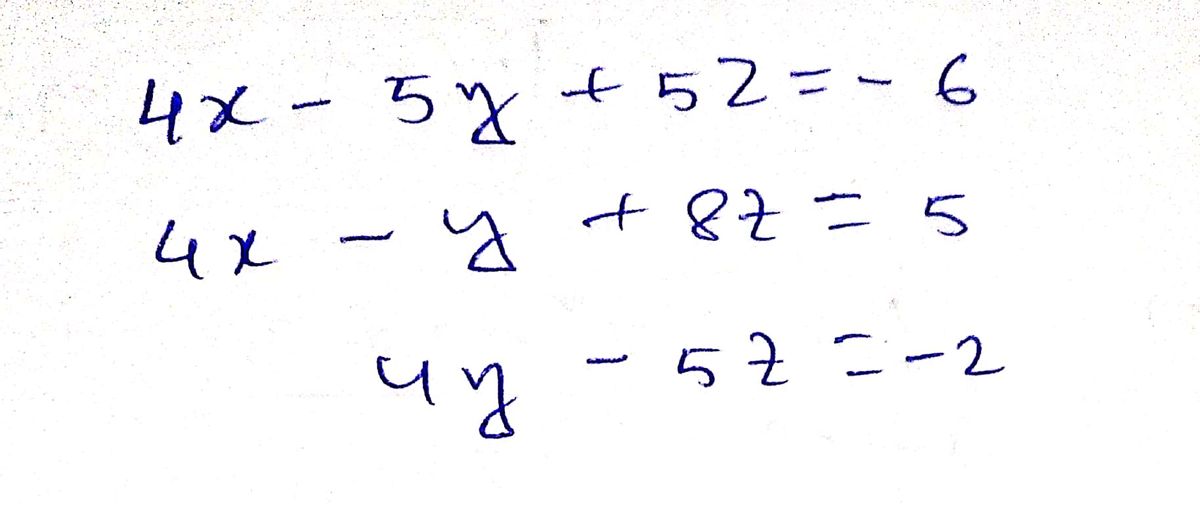 4x - 5y + 5z = - 6
4x - y + 8z = 5
4y - 5z = -2